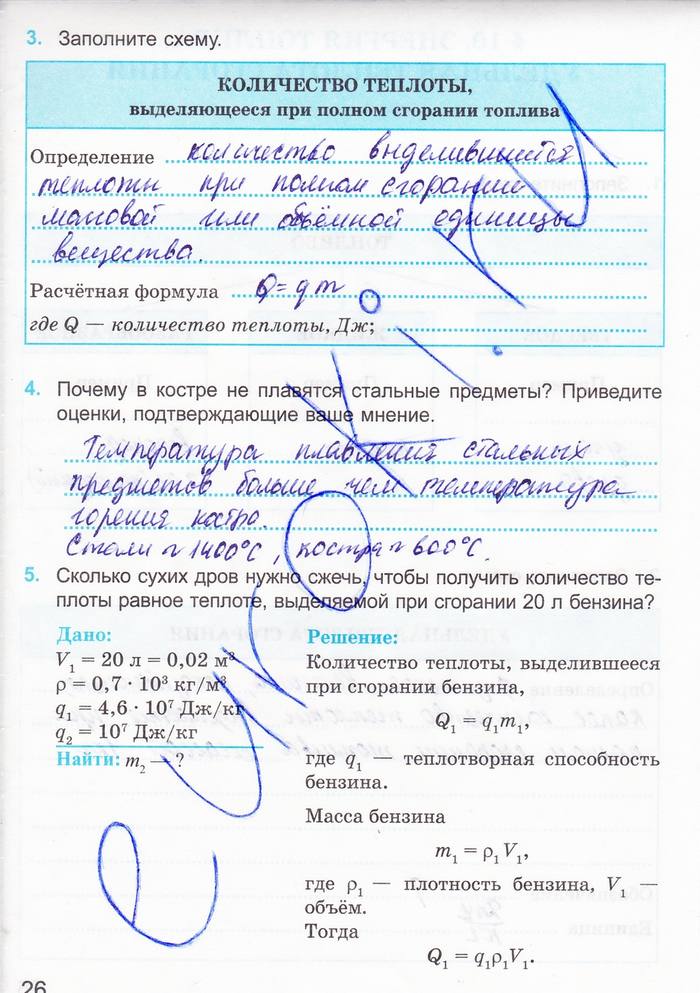 3. Заполните схему.
КОЛИЧЕСТВО ТЕПЛОТЫ,
выделяющееся при полном сгорании топлива
Определение количество выделившийся
теплоты при полном сгорании
массовой или объёмной единицы
вещества.
Расчётная формула Q = qm
где Q — количество теплоты, Дж;
4. Почему в костре не плавятся стальные предметы? Приведите
оценки, подтверждающие ваше мнение.
Температура плавления стальных
предметов больше чем температура
горения костра.
Стали ≈ 1400°C, костра ≈ 600°C.
5. Сколько сухих дров нужно сжечь, чтобы получить количество те-
плоты равное теплоте, выделяемой при сгорании 20 л бензина?
Дано:
V₁ = 20 л = 0,02 м³
ρ = 0,7 · 10³ кг/м³
q₁ = 4,6 · 10⁷ Дж/кг
q₂ = 10⁷ Дж/кг
Найти: m₂ — ?
Решение:
Количество теплоты, выделившееся
при сгорании бензина,
Q₁ = q₁m₁,
где q₁ — теплотворная способность
бензина.
Масса бензина
m₁ = ρ₁V₁,
где ρ₁ — плотность бензина, V₁ —
объём.
Тогда
Q₁ = q₁ρ₁V₁.
26